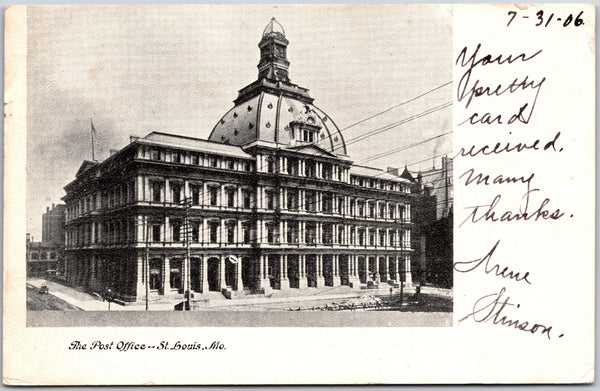 7-31-06.
Your
pretty
card
received.
Many
thanks.
Irene
Stinson.
The Post Office--St. Louis, Mo.